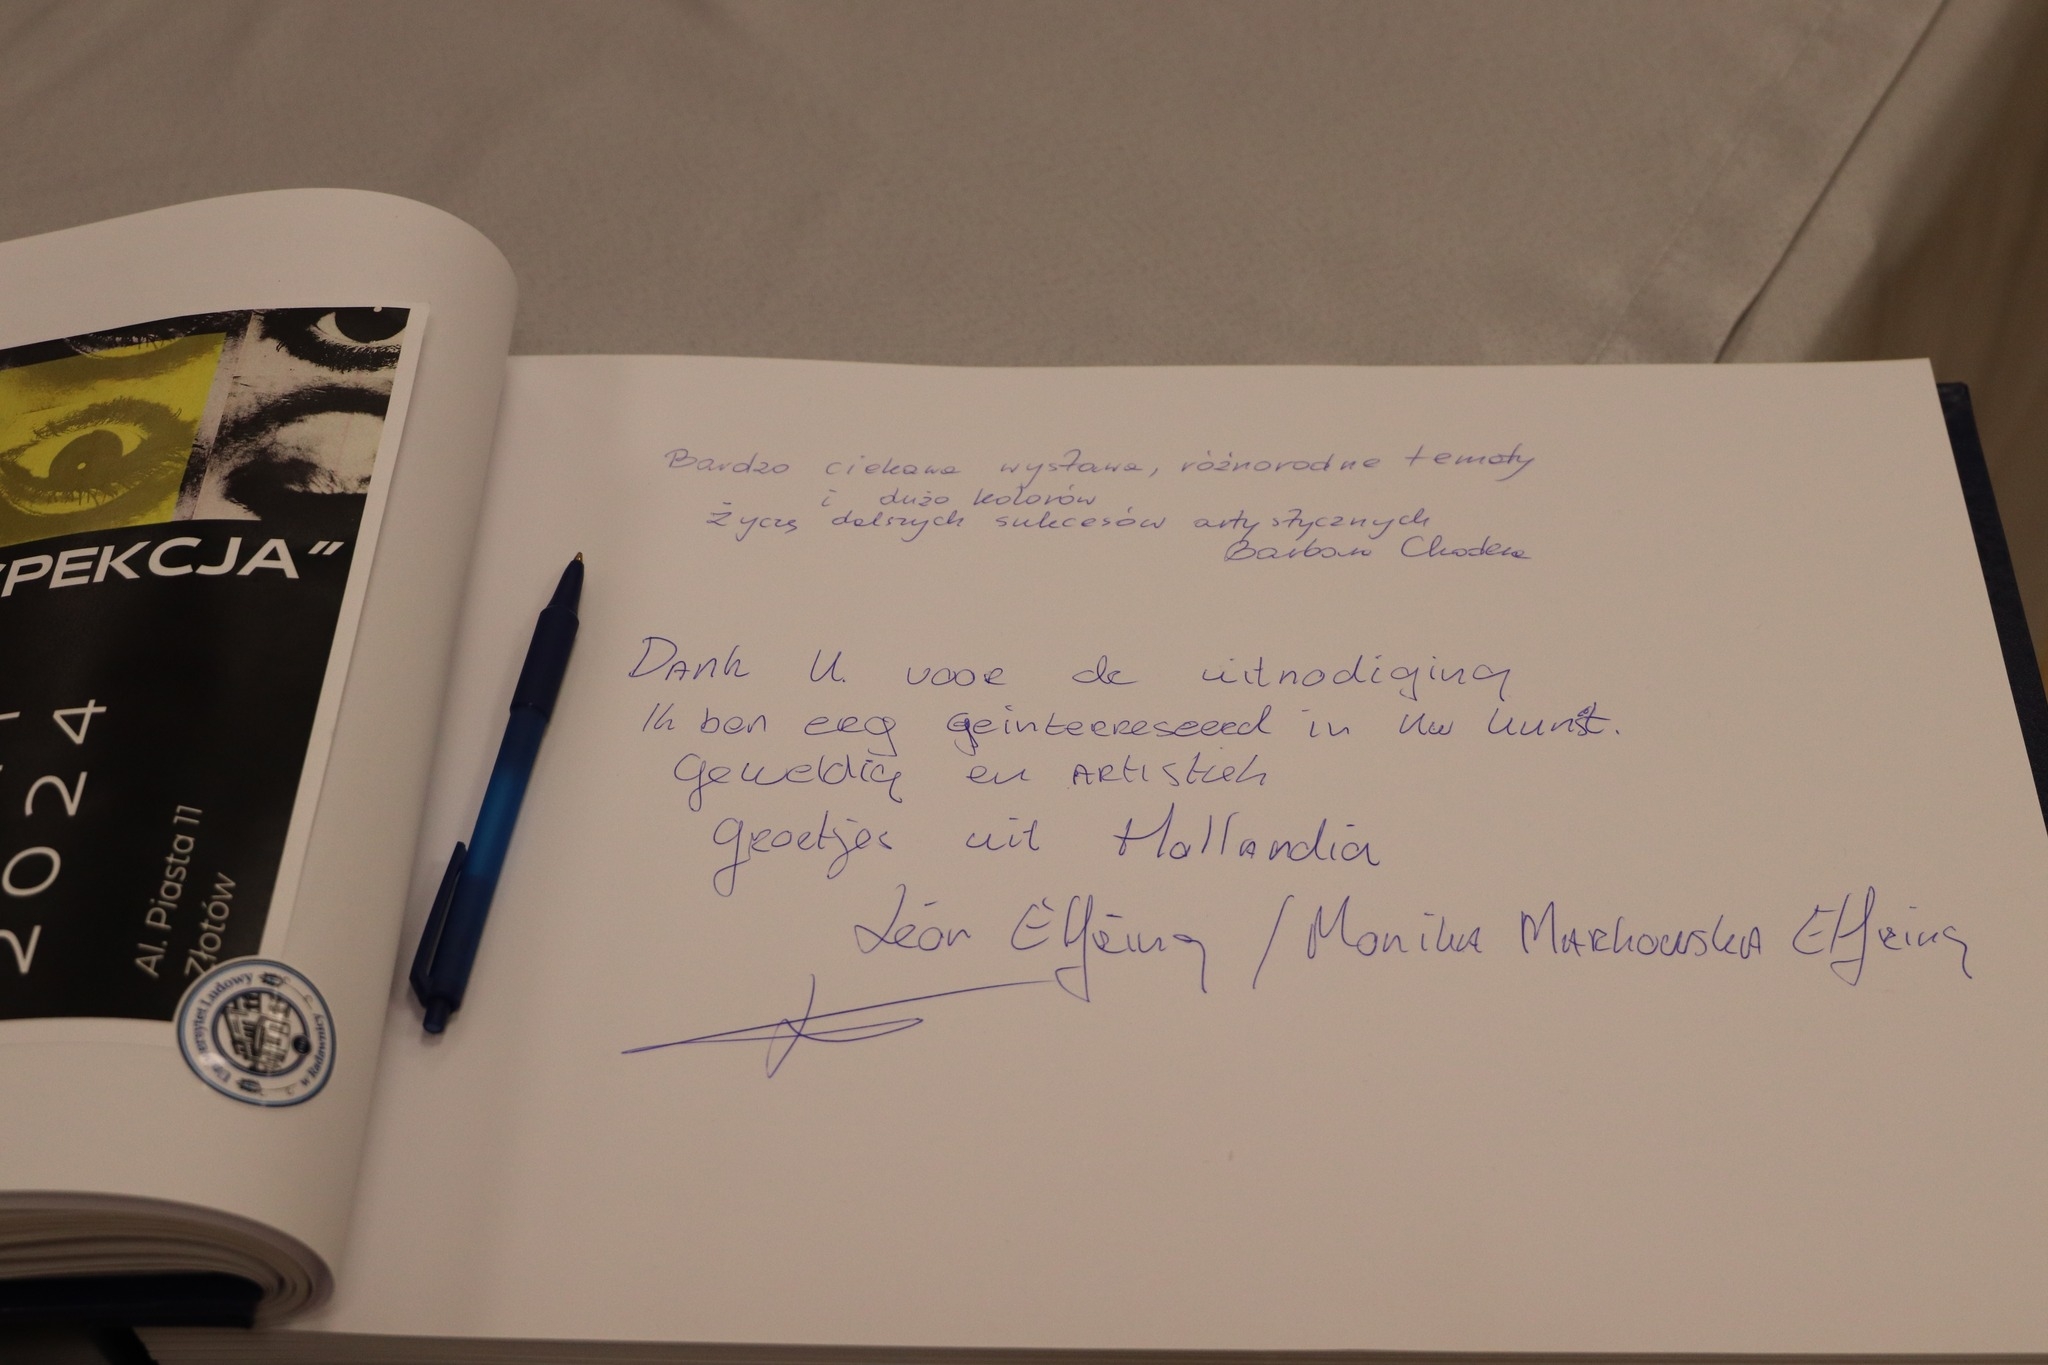 PEKCJA"
2024
Al. Piasta 11
Złotów
ersytet Ludowy
w Radawnicy
Bardzo ciekawa wystawa, różnorodne tematy
i dużo kolorów
Życzę dalszych sukcesów artystycznych
Barbara
Dank U. voor de uitnodiging
Ik ben erg geinteereseerd in Uw kunst.
Geweldig en ARTISTiek
Groetjes uit Hollandia
Léon Elfring / Monika Markowska Elfring